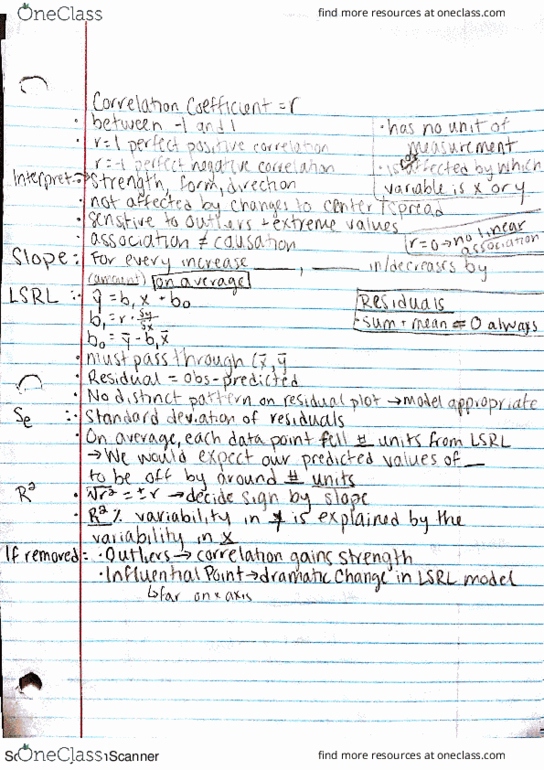 OneClass
find more resources at oneclass.com
Correlation Coefficient = r
• between -1 and 1
• r=1 perfect positive correlation
• r=-1 perfect negative correlation
• has no unit of
measurement
affected by which
variable is x or y
Interpret:→ strength, form, direction
• not affected by changes to center + spread
• senstive to outliers + extreme values
• association ≠ causation
r=0→no linear
association
Slope: • For every increase ____, ____ in/decreases by
(amount) on average
LSRL : • ŷ = b₁x + b₀
b₁ = r · sy/sx
b₀ = ȳ - b₁x̄
Residuals
• sum + mean = 0 always
• must pass through (x̄, ȳ
• Residual = obs-predicted
• No distinct pattern on residual plot → model appropriate
Se : • Standard deviation of residuals
• On average, each data point fell # units from LSRL
→ We would expect our predicted values of __
to be off by around # units
R² • √r² = ±r → decide sign by slope
• R² % variability in y is explained by the
variability in x
If removed: • Outliers → correlation gains strength
• Influential Point → dramatic change in LSRL model
↳ far on x axis
OneClass
Scanner
find more resources at oneclass.com